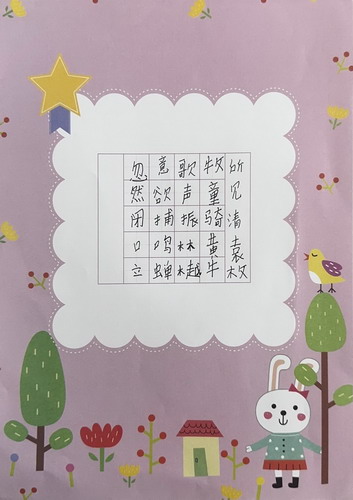 所见清袁枚
牧童骑黄牛
歌声振林樾
意欲捕鸣蝉
忽然闭口立